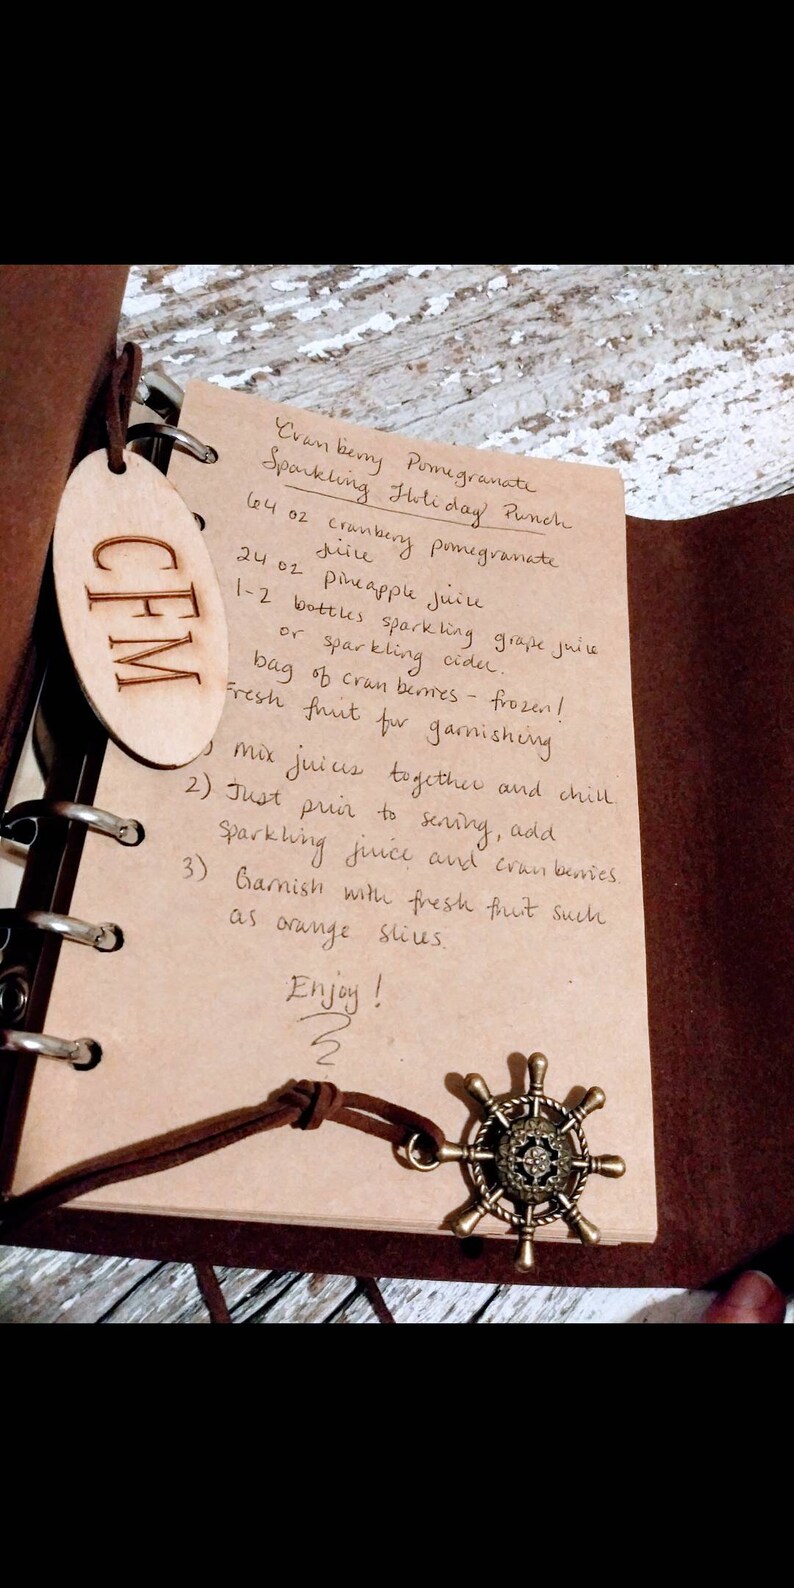 Cranberry Pomegranate
Sparkling Holiday Punch
64 oz cranbery pomegranate
juice
24 oz pineapple juice
1-2 bottles sparkling grape juice
or sparkling cider.
bag of cranberries - frozen!
Fresh fruit for garnishing
) mix juices together and chill
2) Just prior to serving, add
sparkling juice and cranberries.
3) Garnish with fresh fruit such
as orange slices.
Enjoy!
CFM